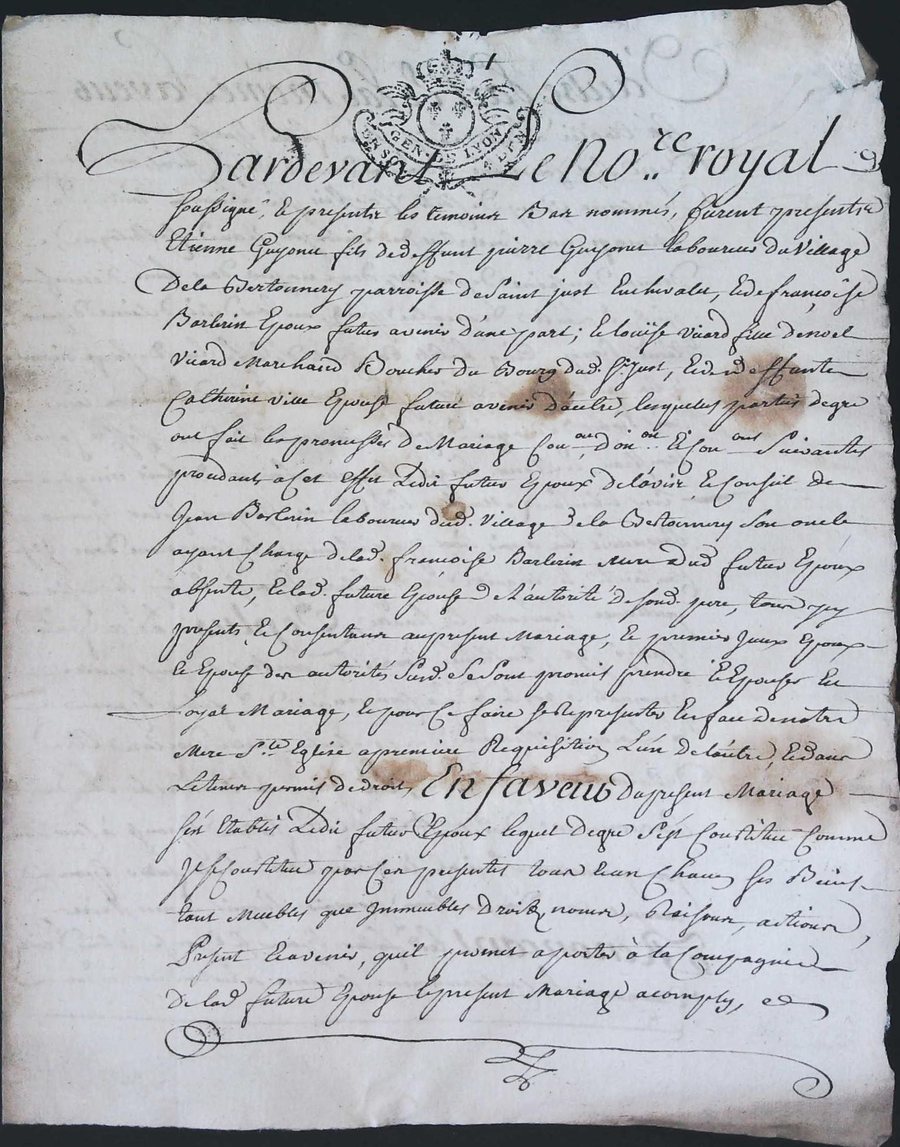 GEN. DE LYON
Pardevant Le No.re royal
soussigné, et presents les temoins Bas nommés, furent presents
Etienne Guyonet fils de deffunt pierre Guyonet laboureur du Village
De la Bertonnery parroisse de Saint just Enchevalet, et de françoise
Barlerin Epoux futur avenir d'une part; et loüise vicard fille de noel
vicard Marchand Boucher du Bourg dud. St. Just, et de deffunte
Catherine ville Epouse future avenir d'autre, lesquelles parties de gre
ont fait les promesses de Mariage Con.on d'on.on et Con.ons Suivantes
procedants à Cet effet Ledit futur Epoux de l'avis et Conseil de
Jean Barlerin laboureur dud. Village de la Bertonnery Son oncle
ayant Charge de lad. françoise Barlerin mere dud futur Epoux
absente, et lad. future Epouse de L'autorité de sond. pere, tous icy
presents et Consentants au present Mariage, et premier Jceux Epoux
et Epouse des autorités Susd. Se Sont promis prendre et Epouser En
Loyal Mariage, et pour Ce faire se Representer En face de notre
Mere Ste Eglise a premiere Requisition L'un de lautre, et dans
Le tems permis de droit, En faveur Du present Mariage
s'est Etablis Ledit futur Epoux lequel de gre s'est Constitué Comme
Jl se Constitue par Ces presentes tous et un Chacun ses Biens
tant Meubles que Jmmeubles Droits, noms, Raisons, actions,
Present et avenir, quil promet apporter à la Compagnie
de lad future Epouse le present Mariage acomply, et